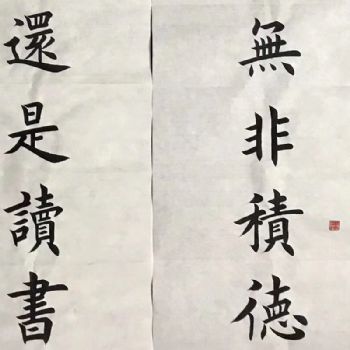 無非積德
還是讀書